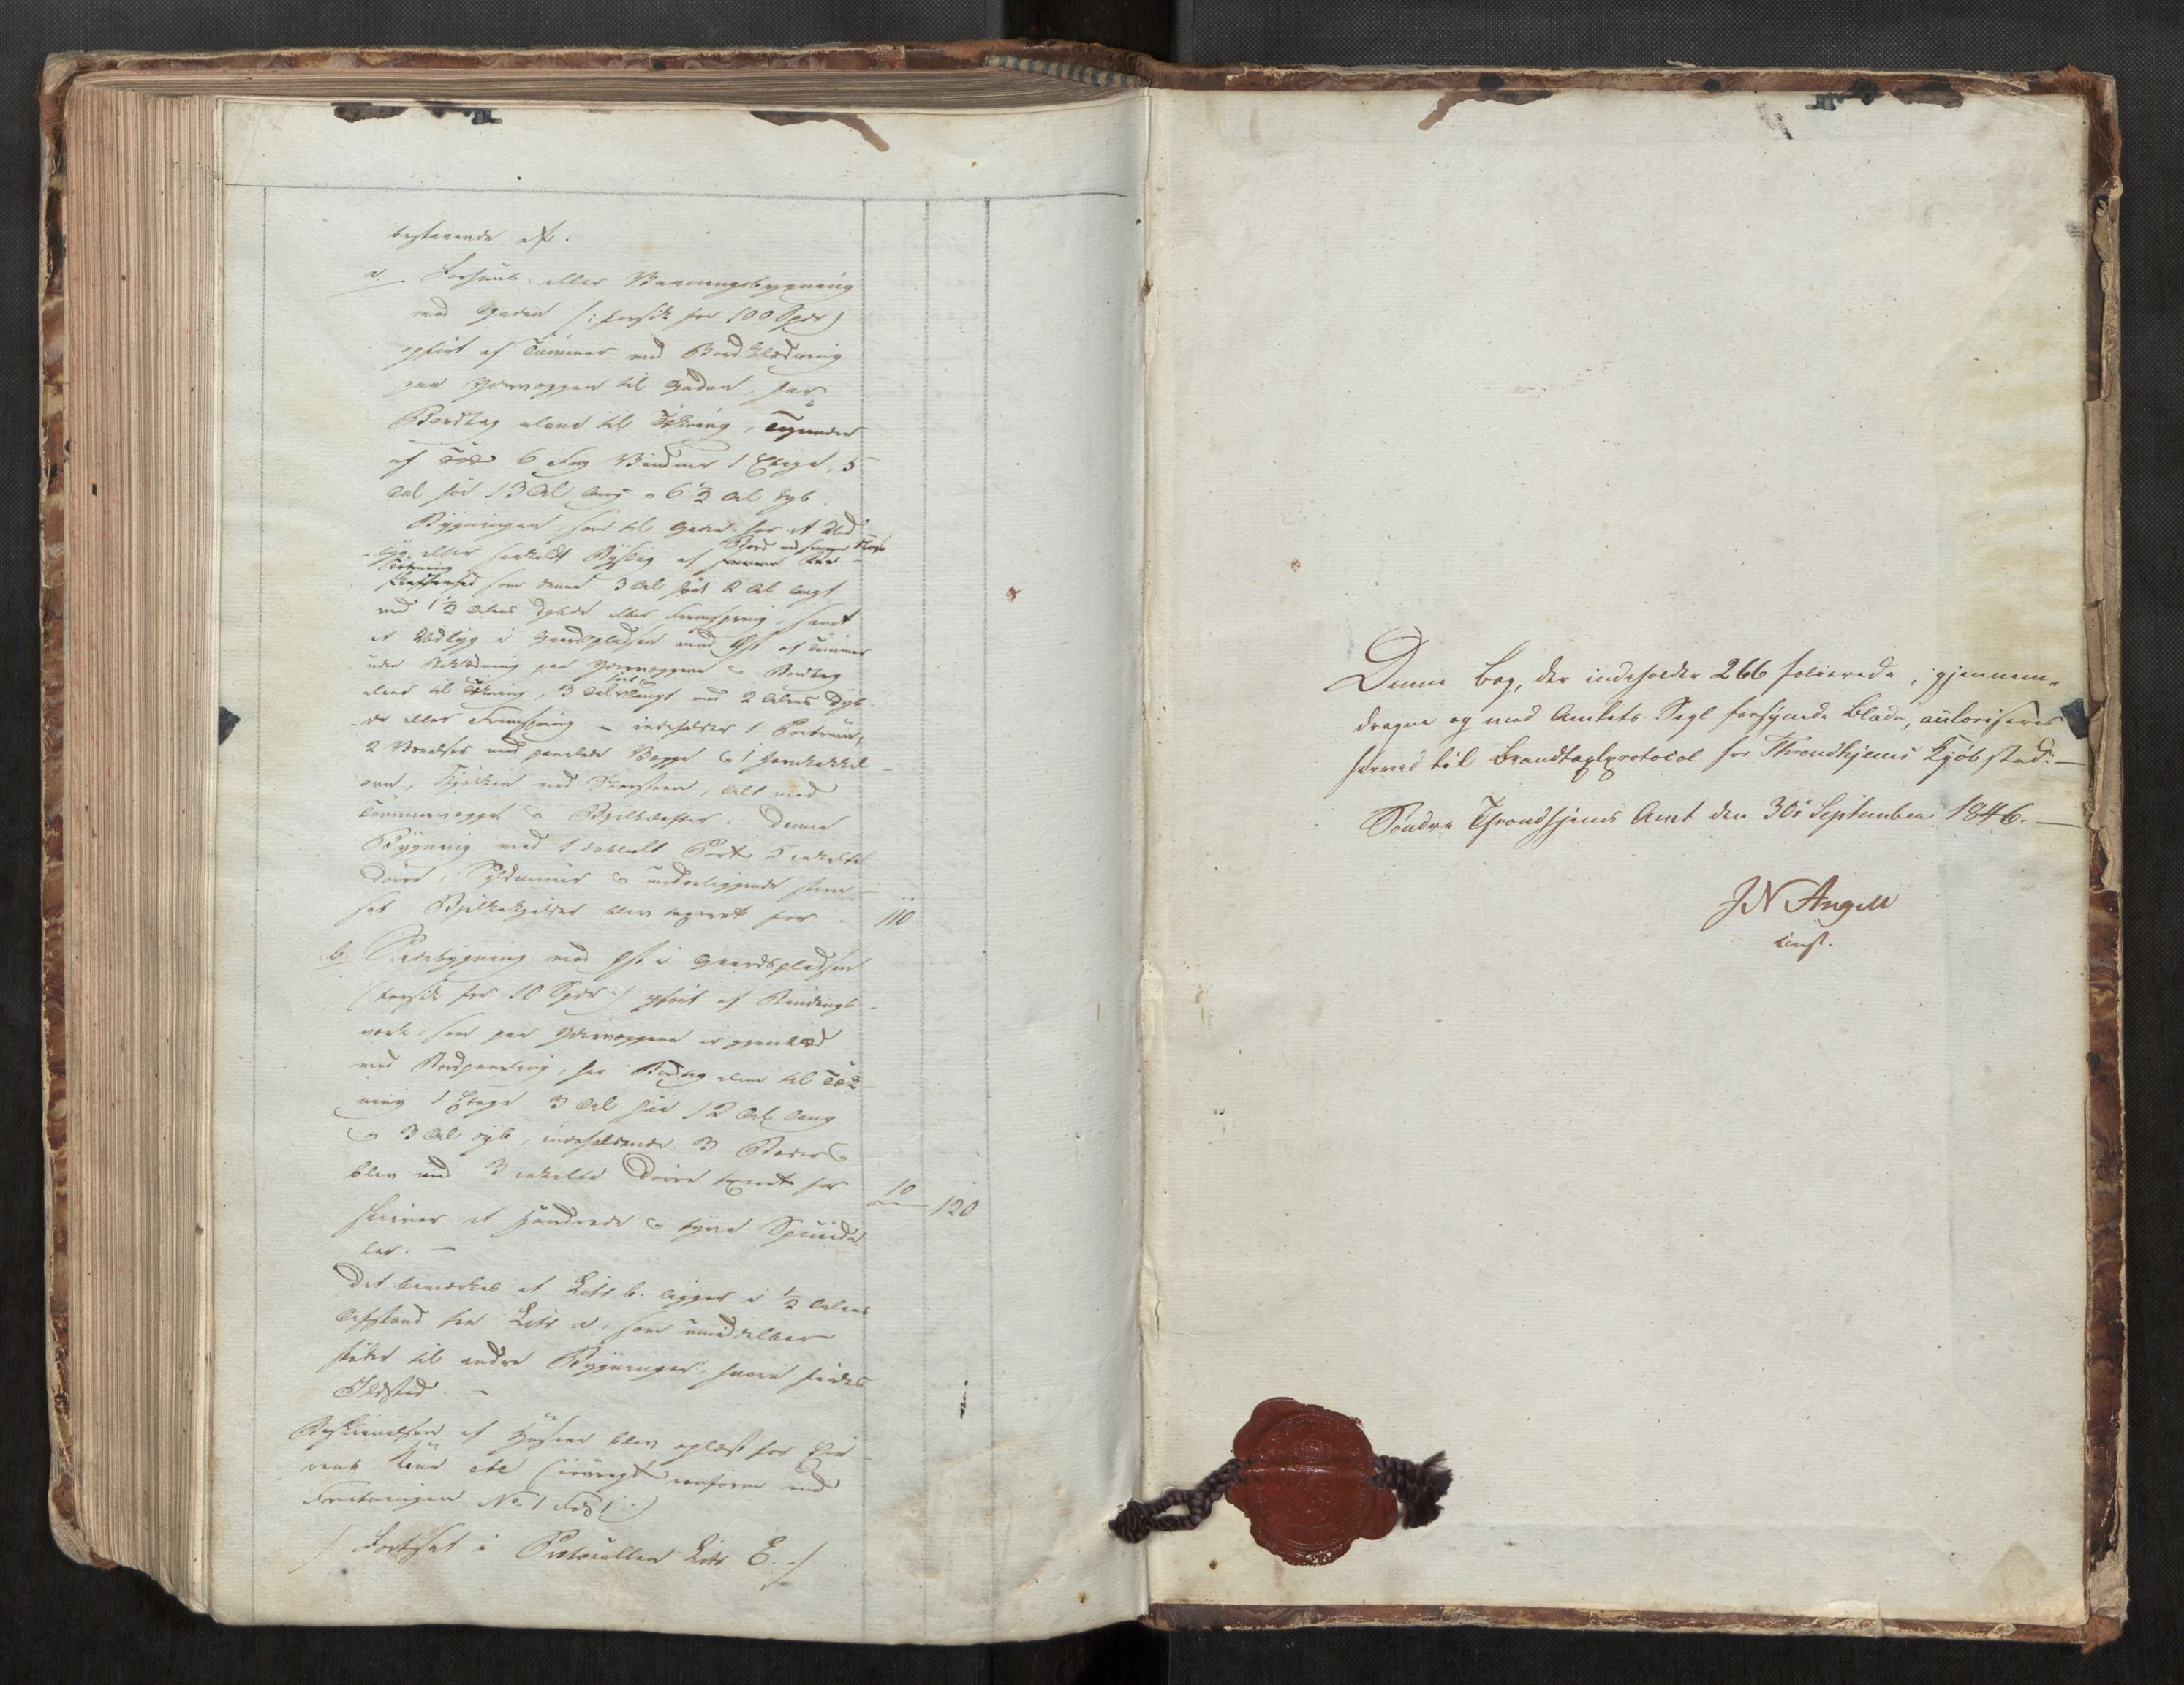 bestaaende af:
a. Forhuus eller Vaaningsbygning
mod Gaden (: forsik for 100 Spdr)
opført af Tømmer med Bordklædning
paa Ydervæggen til Gaden, har
Bordtag alene til Tækning,
af 6 Fag Vinduer 1 Etage, 5
Al høi 13 Al lang o 6½ Al dyb.
Bygningen, som til Gaden har et Ud-
byg eller af Bord med
som 3 Al høit 2 Al langt
med 1½ Alens Dybde eller Fremspring, samt
et Udbyg i Gaardspladsen mod Øst af Tømmer
uden Beklædning paa Ydervæggene o Bordtag
alene til Tækning, 3 Al langt med 2 Alens Dyb-
de eller Fremspring – indeholder 1 Portrum,
2 Værelser med panelede Vægge o 1
ovn, Kjøkken med Skorsteen, Alt med
Tømmervægge o Bjelkelofter. Denne
Bygning med 1 dobbelt Port 5 enkelte
Dørre, Syldmuur o underliggende
sat Bjelkekjelder blev taxeret for . 110
b. Sidebygning mod Øst i Gaardspladsen
(forsik for 10 Spdr) opført af Bindings-
værk, som paa Ydervæggene er
med Bordpaneling, har Bordtag alene til Tæk-
ning 1 Etage 3 Al høi 12 Al lang
o 3 Al dyb, indeholdende 3 Boder o
blev med 3 enkelte Dørre taxeret for 10 120
skriver et Hundrede o tyve Specida-
ler. –
Det bemærkes at Litr b. ligger i ½ Alens
Afstand fra Litr a. som umiddelbar
støder til andre Bygninger, hvori findes
Ildsted. –
Beskrivelsen af Husene blev oplæst for
etc (iøvrigt conform med
Forretningen No 1 )
/ Fortsat i Protocollen Litr E. /
Denne Bog, der indeholder 266 folierede, igjennem-
dragne og med Amtets Segl forsynede Blade, autoriseres
herved til Brandtaxtprotocol for Throndhjems Kjøbstad. –
Søndre Throndhjems Amt den 30te September 1846. –
JN Angell
const.